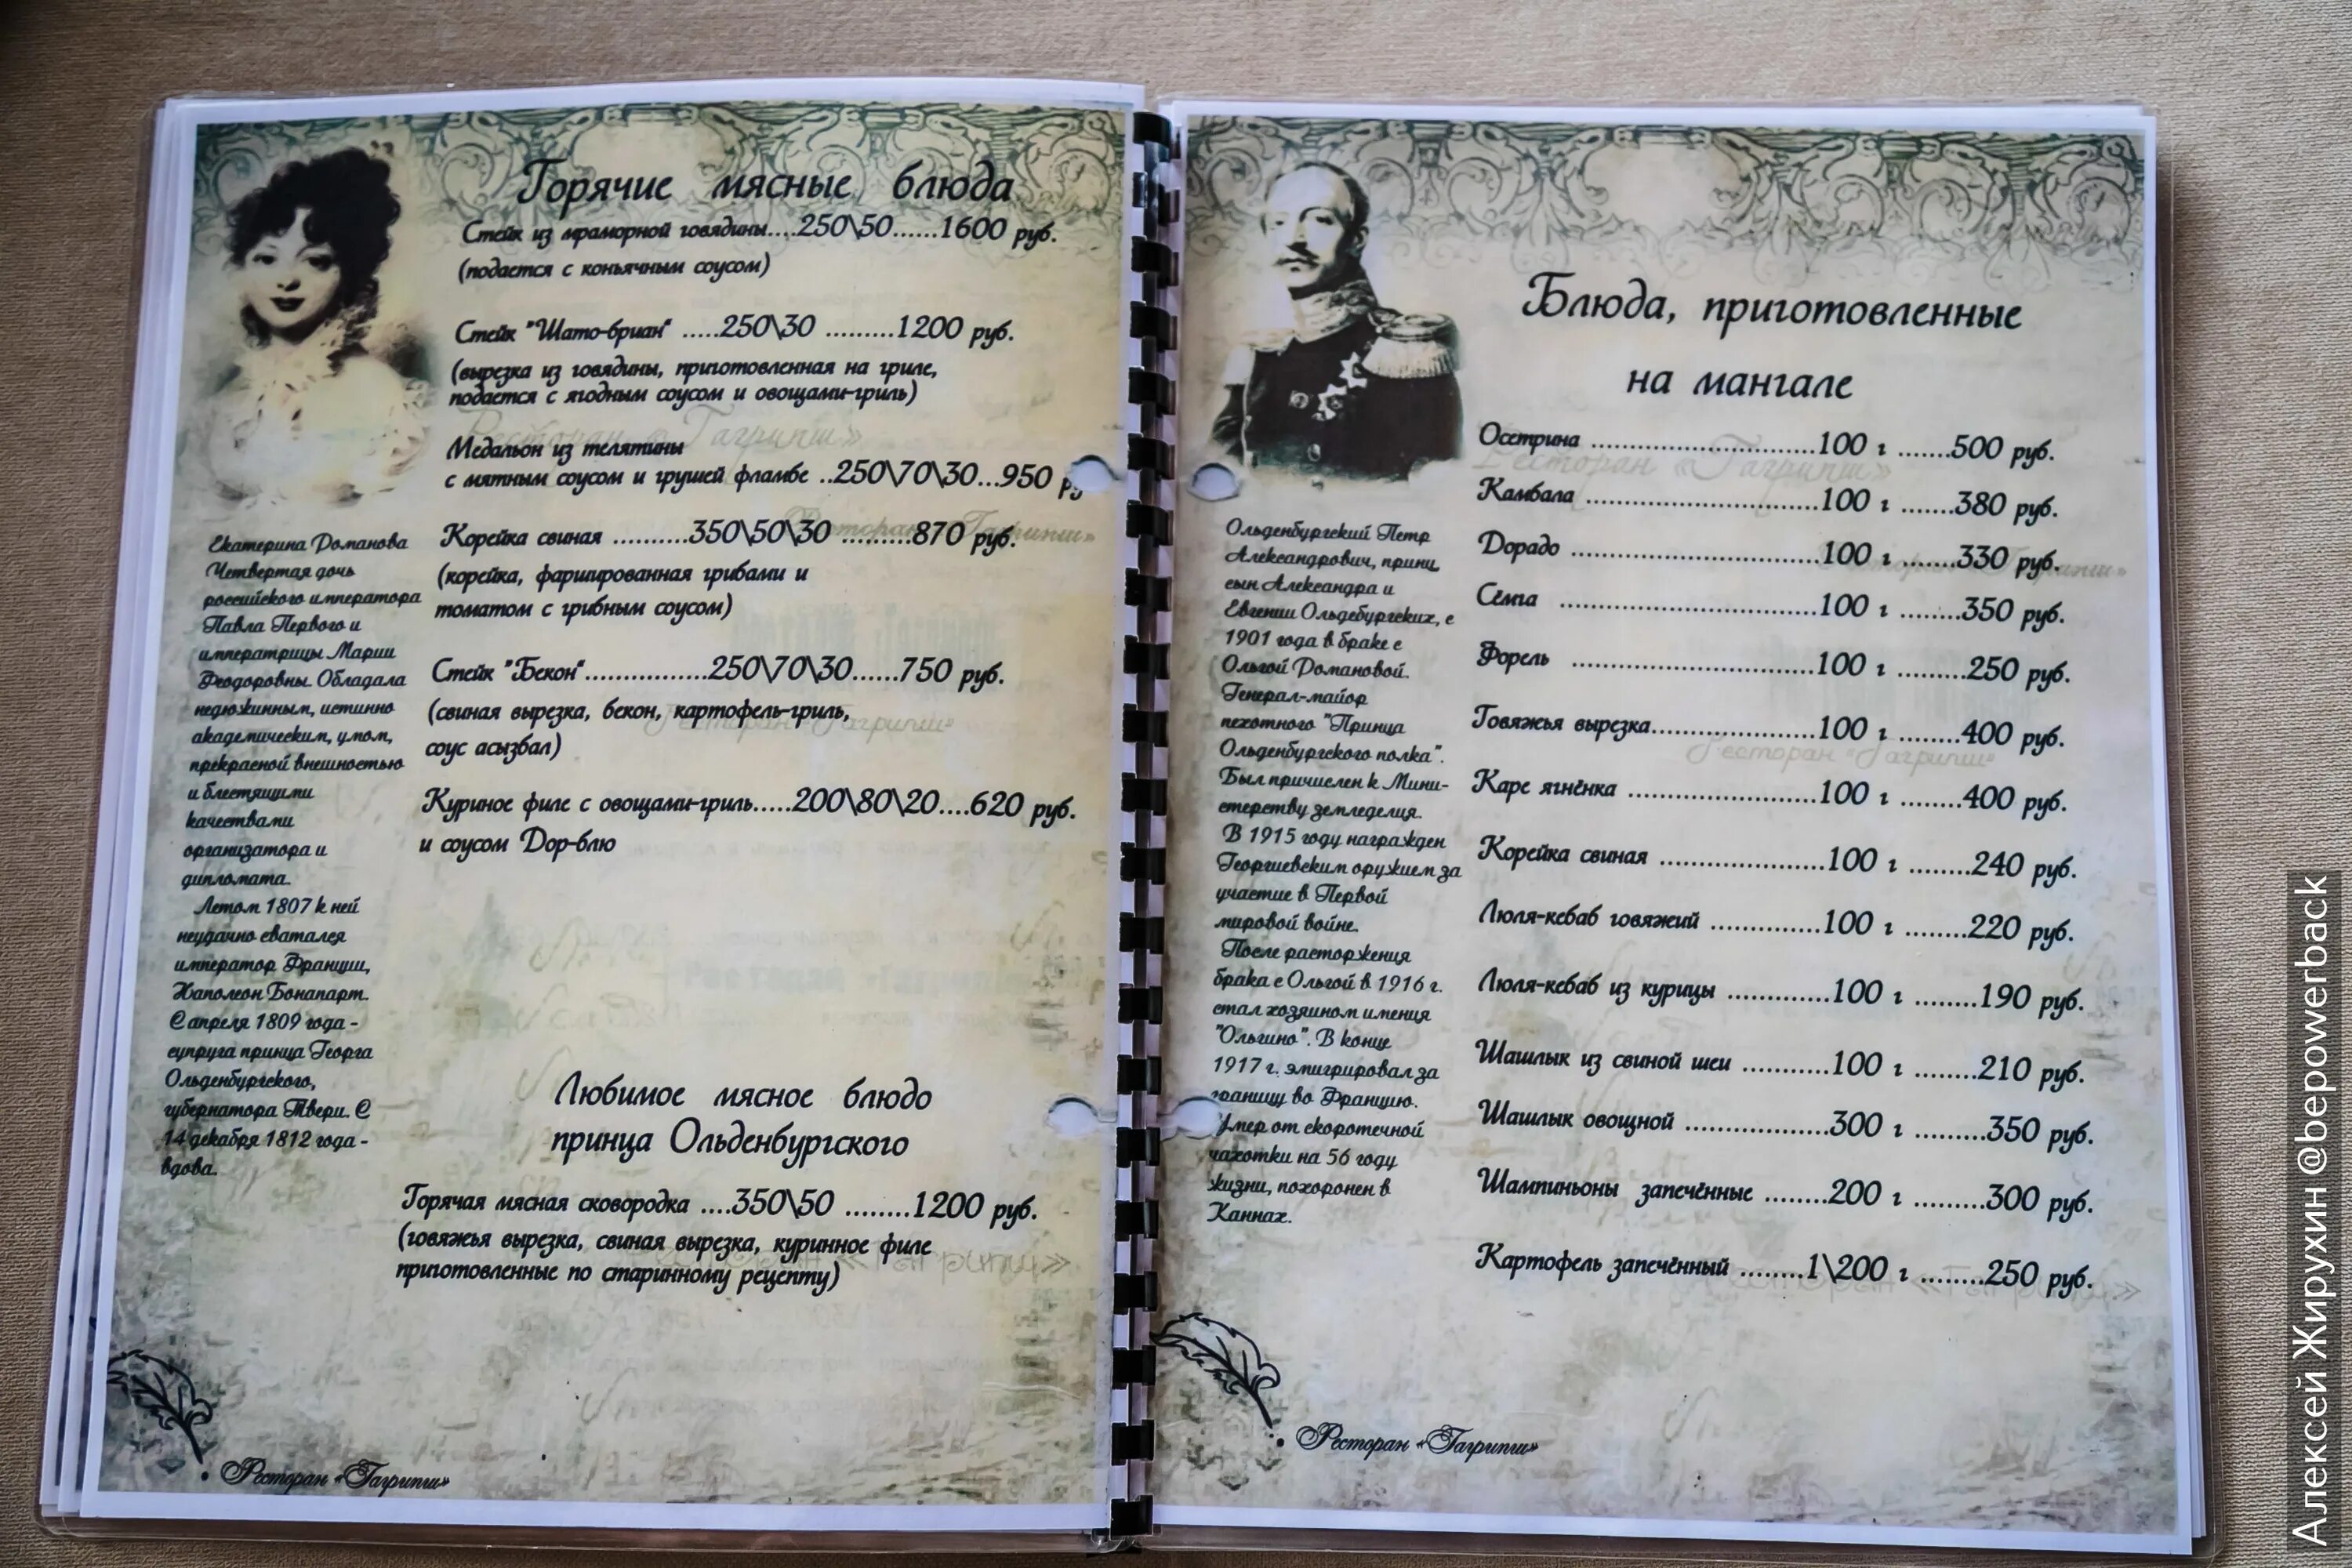 Горячие мясные блюда
Стейк из мраморной говядины....250\50......1600 руб.
(подается с коньячным соусом)
Стейк "Шато-бриан" .....250\30 .........1200 руб.
(вырезка из говядины, приготовленная на гриле,
подается с ягодным соусом и овощами-гриль)
Медальон из телятины
с мятным соусом и грушей фламбе ..250\70\30...950 ру
Корейка свиная ..........350\50\30 .........870 руб.
(корейка, фаршированная грибами и
томатом с грибным соусом)
Стейк "Бекон"................250\70\30......750 руб.
(свиная вырезка, бекон, картофель-гриль,
соус асызбал)
Куриное филе с овощами-гриль.....200\80\20....620 руб.
и соусом Дор-блю
Екатерина Романова
Четвертая дочь
российского императора
Павла Первого и
императрицы Марии
Феодоровны. Обладала
недюжинным, истинно
академическим, умом,
прекрасной внешностью
и блестящими
качествами
организатора и
дипломата.
Летом 1807 к ней
неудачно сватался
император Франции,
Наполеон Бонапарт.
С апреля 1809 года -
супруга принца Георга
Ольденбургского,
губернатора Твери. С
14 декабря 1812 года -
вдова.
Любимое мясное блюдо
принца Ольденбургского
Горячая мясная сковородка ....350\50 ........1200 руб.
(говяжья вырезка, свиная вырезка, куринное филе
приготовленные по старинному рецепту)
Ресторан «Гагрипш»
Блюда, приготовленные
на мангале
Осетрина ............................100 г .......500 руб.
Камбала .............................100 г .......380 руб.
Дорадо ..............................100 г .......330 руб.
Сёмга ...............................100 г ........350 руб.
Форель ..............................100 г .........250 руб.
Говяжья вырезка....................100 г ........400 руб.
Каре ягнёнка .......................100 г ........400 руб.
Корейка свиная ....................100 г .........240 руб.
Люля-кебаб говяжий .............100 г .........220 руб.
Люля-кебаб из курицы ............100 г .........190 руб.
Шашлык из свиной шеи ..........100 г ........210 руб.
Шашлык овощной .................300 г .........350 руб.
Шампиньоны запечённые ........200 г .........300 руб.
Картофель запечённый ........1\200 г ........250 руб.
Ольденбургский Петр
Александрович, принц,
сын Александра и
Евгении Ольдебургских, с
1901 года в браке с
Ольгой Романовой.
Генерал-майор
пехотного "Принца
Ольденбургского полка".
Был причислен к Мини-
стерству земледелия.
В 1915 году награжден
Георгиевским оружием за
участие в Первой
мировой войне.
После расторжения
брака с Ольгой в 1916 г.
стал хозяином имения
"Ольгино". В конце
1917 г. эмигрировал за
границу во Францию.
Умер от скоротечной
чахотки на 56 году
жизни, похоронен в
Каннах.
Ресторан «Гагрипш»
Алексей Жирухин @bepowerback